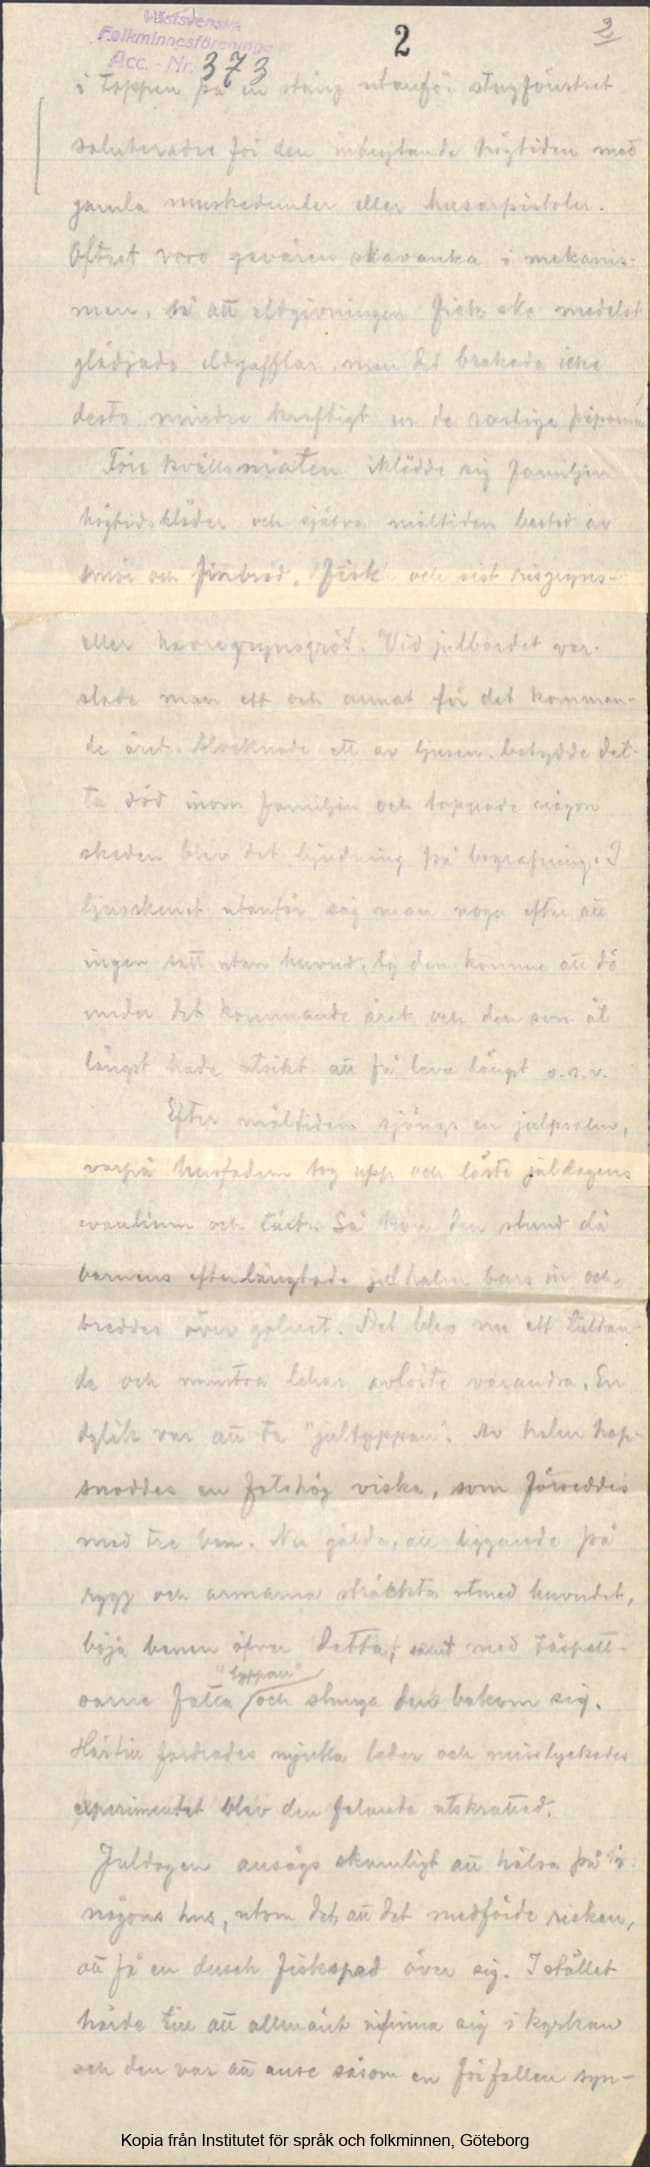 Västsvenska
Folkminnesföreningen
Acc. - Nr. 373
2
2
i toppen på en stång utanför stugfönstret
saluterades för den inbrytande högtiden med
gamla muskedunder eller husarpistoler.
Oftast voro gevären skavanka i mekanis-
men, så att eldgivningen fick ske medelst
glödgade eldgafflar, men det brakade icke
desto mindre kraftigt ur de rostiga piporna.
Före kvällsmaten iklädde sig familjen
högtidskläder och själva måltiden bestod av
smör och finbröd, fisk och sist risgryns-
eller havregrynsgröt. Vid julbordet var-
slade man ett och annat för det komman-
de året. Slocknade ett av ljusen, betydde det-
ta död inom familjen och tappade någon
skeden blev det bjudning på begrafning. I
ljusskenet utanför såg man noga efter att
ingen satt utan huvud, ty den komme att dö
under det kommande året och den som åt
längst hade utsikt att få leva längst o.s.v.
Efter måltiden sjöngs en julpsalm,
varpå husfadern tog upp och läste juldagens
evanlium och Så kom den stund då
barnens efterlängtade julhalm bars in och
breddes över golvet. Det blev nu ett
de och muntra lekar avlöste varandra. En
dylik var att ta "jultyppan". Av halm hop-
snoddes en fotshög viska, som förseddes
med tre ben. Nu gällde, att liggande på
rygg och armarna sträckta utmed huvudet,
böja benen öfver detta, samt med tåspett-
sarna fatta "typpan" och slunga den bakom sig.
Härtill fordrades mjuka leder och misslyckades
experimentet blev den felande utskrattad.
Juldagen ansågs skamligt att hälsa på i
någons hus, utom det, att det medförde risken,
att få en dusch fiskspad över sig. I stället
hörde till att allmänt infinna sig i kyrkan
och den var att anse såsom en förfallen syn-
Kopia från Institutet för språk och folkminnen, Göteborg